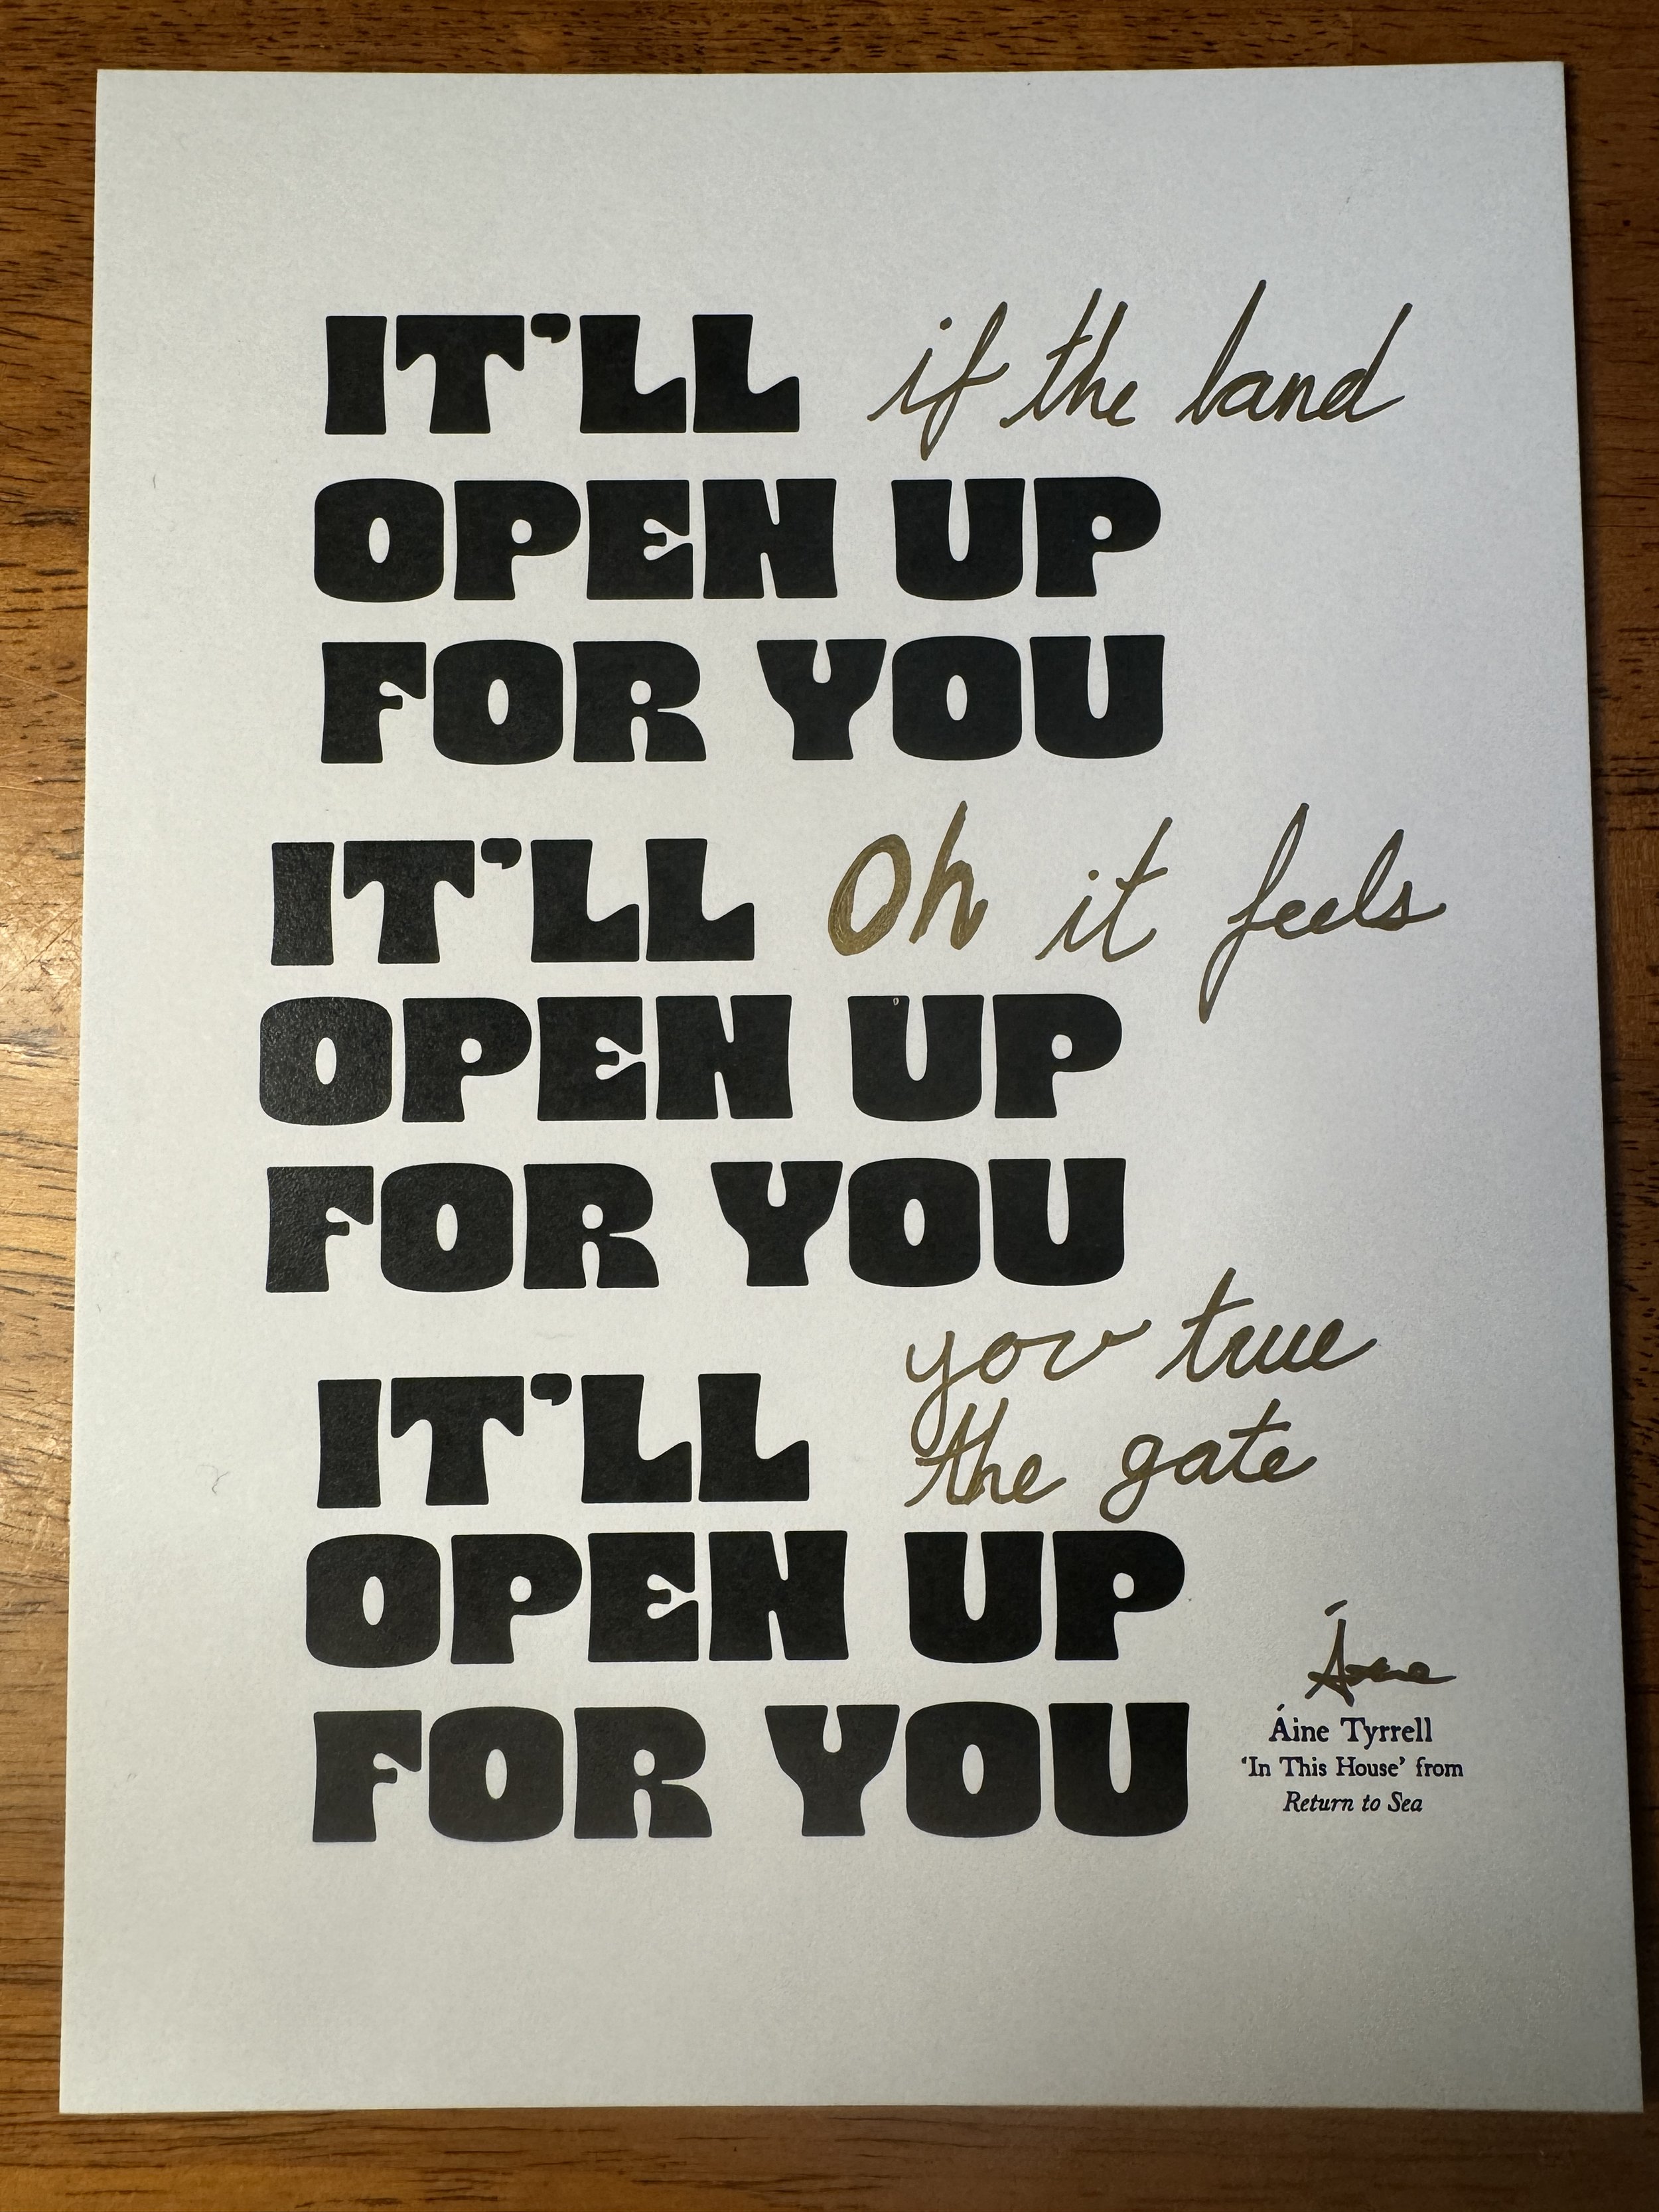 IT'LL if the land
OPEN UP
FOR YOU
IT'LL Oh it feels
OPEN UP
FOR YOU
you true
IT'LL the gate
OPEN UP
FOR YOU
Áine
Áine Tyrrell
‘In This House’ from
Return to Sea